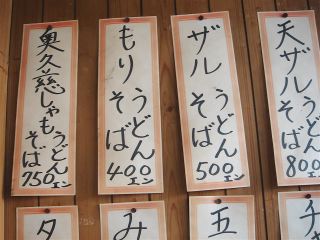 天ザル
うどん
そば
800エン
ザル
うどん
そば
500エン
もり
うどん
そば
400エン
奥久慈しゃも
うどん
そば
750エン
チ
五
み
タ